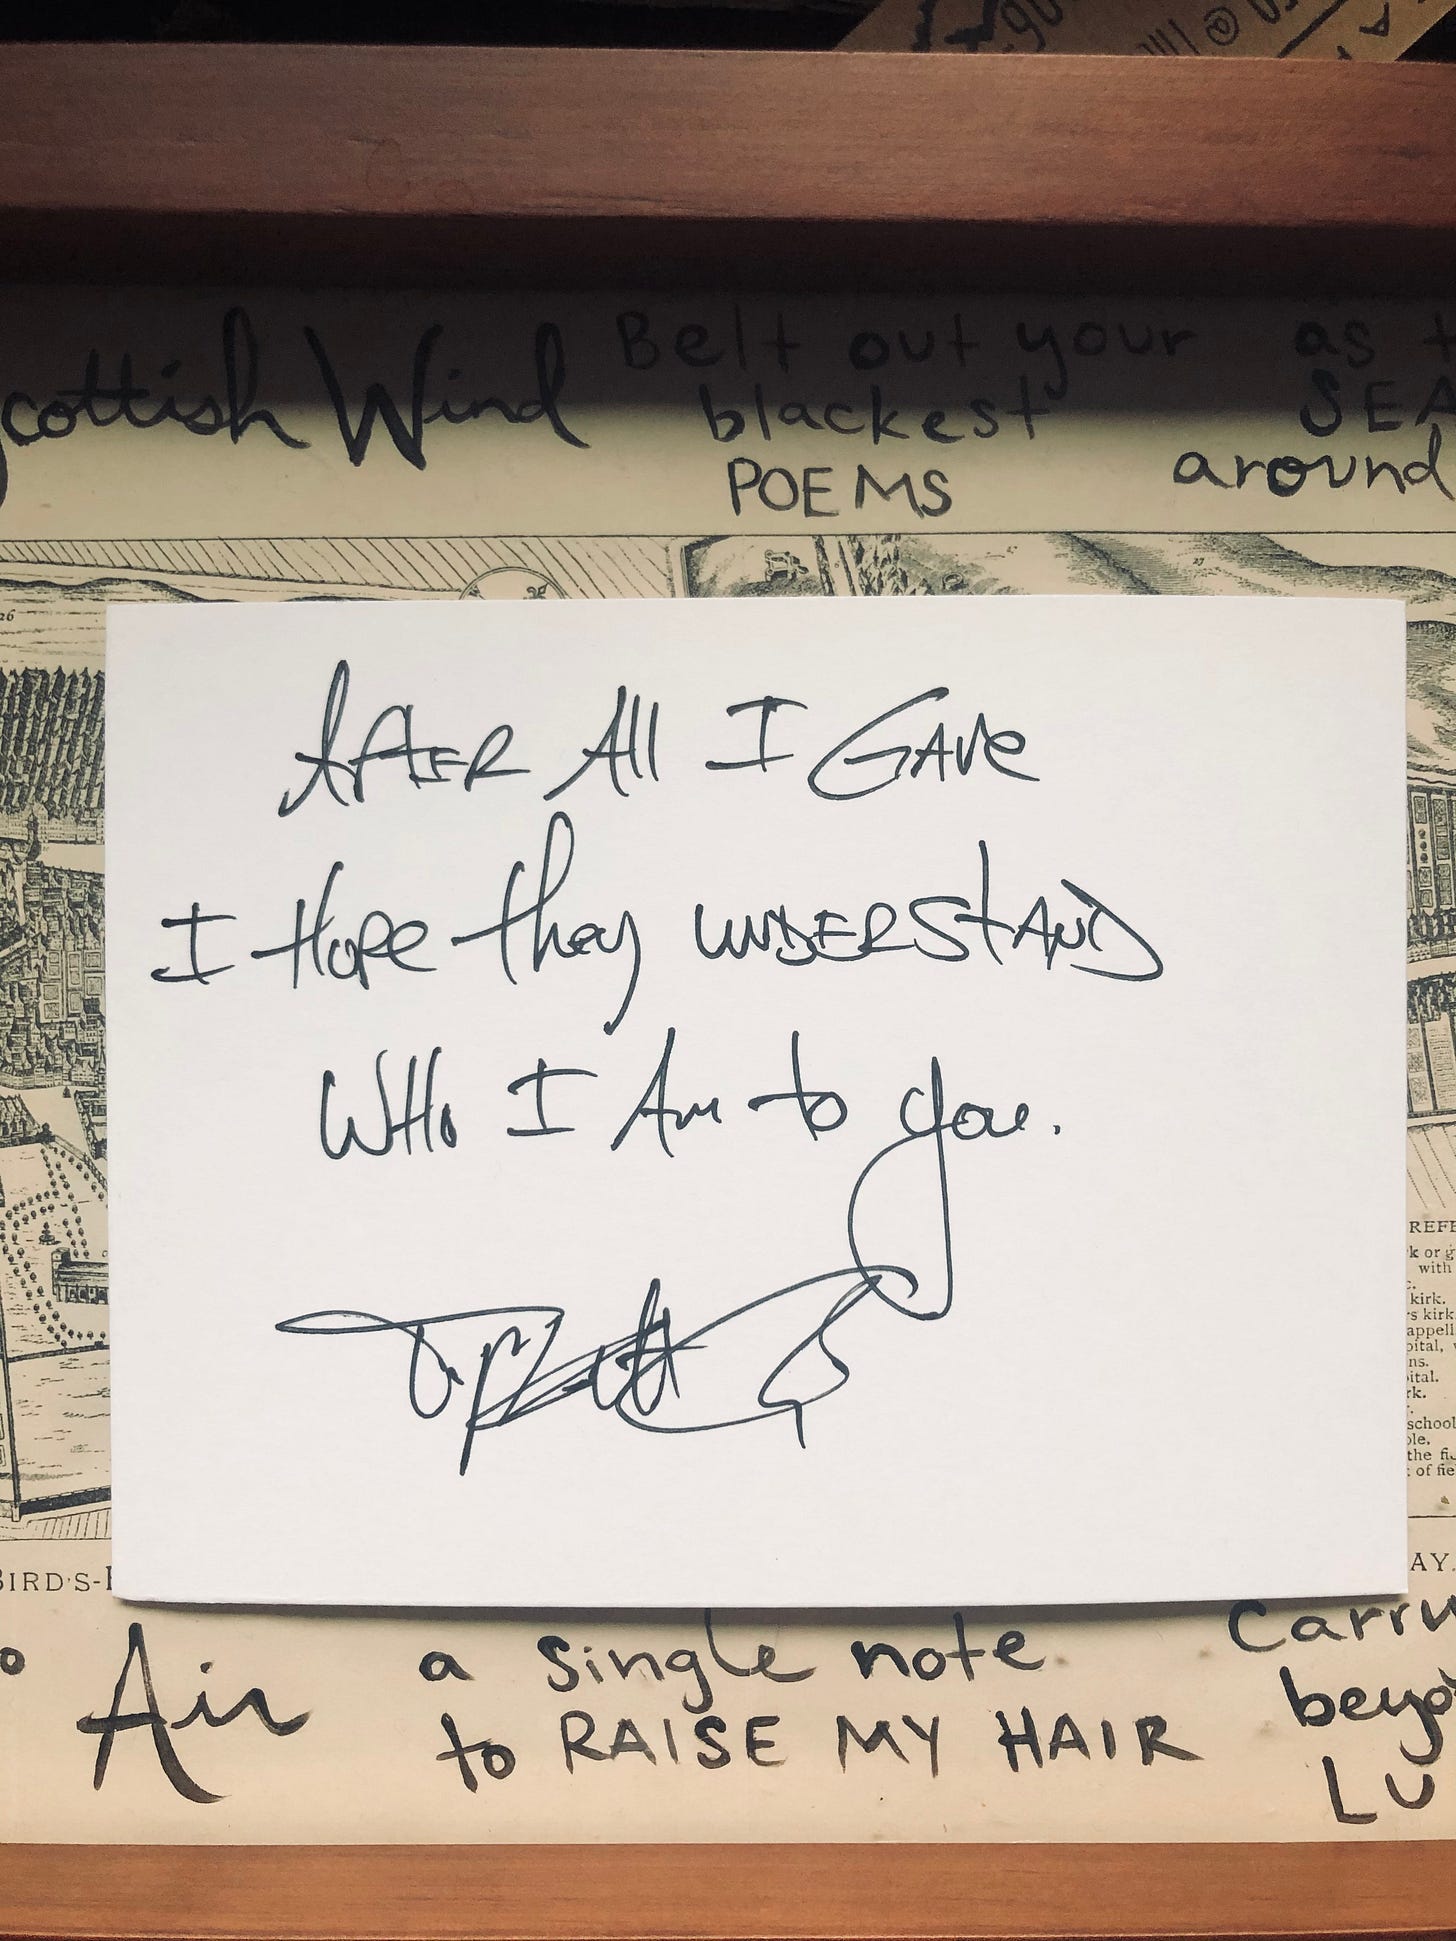 Scottish Wind
Belt out your
blackest
POEMS
as
SEA
around
26
27
After All I Gave
I Hope they UNDERStAND
WHo I Am to you.
REFE
k or g
with
kirk.
s kirk
appell
pital,
ns.
ital.
rk.
school
ole.
the fi
of fie
BIRD'S-
AY.
Air
a single note
to RAISE MY HAIR
Carry
beyo
LU